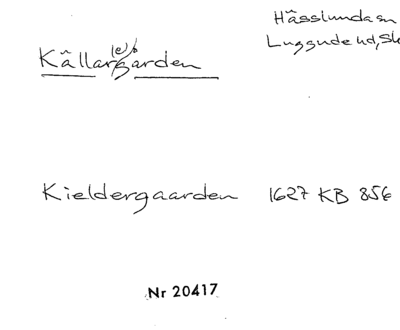 Hässlunda sn
Källar(e)gården
Luggude hd, Sk
Kieldergaarden 1627 KB 856
Nr 20417